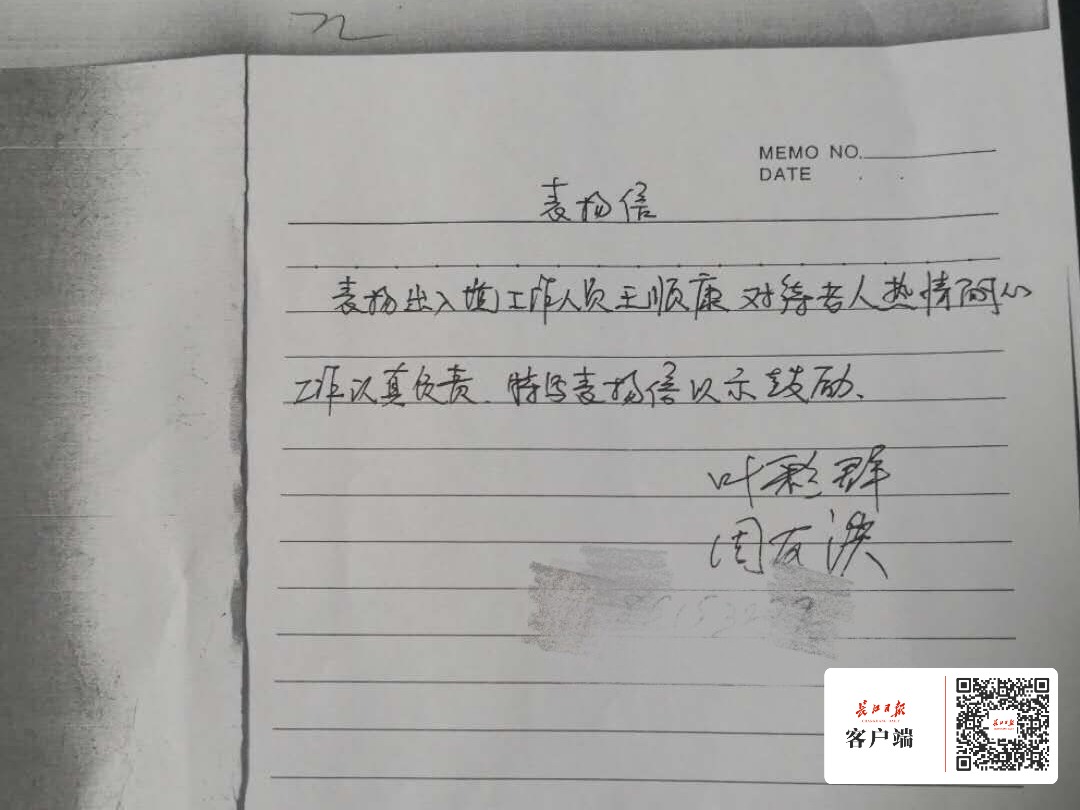 MEMO NO.
DATE
表扬信
表扬出入境工作人员王顺康对待老人热情耐心
工作认真负责、特写表扬信以示鼓励、
叶彩群
周友洪
长江日报
客户端